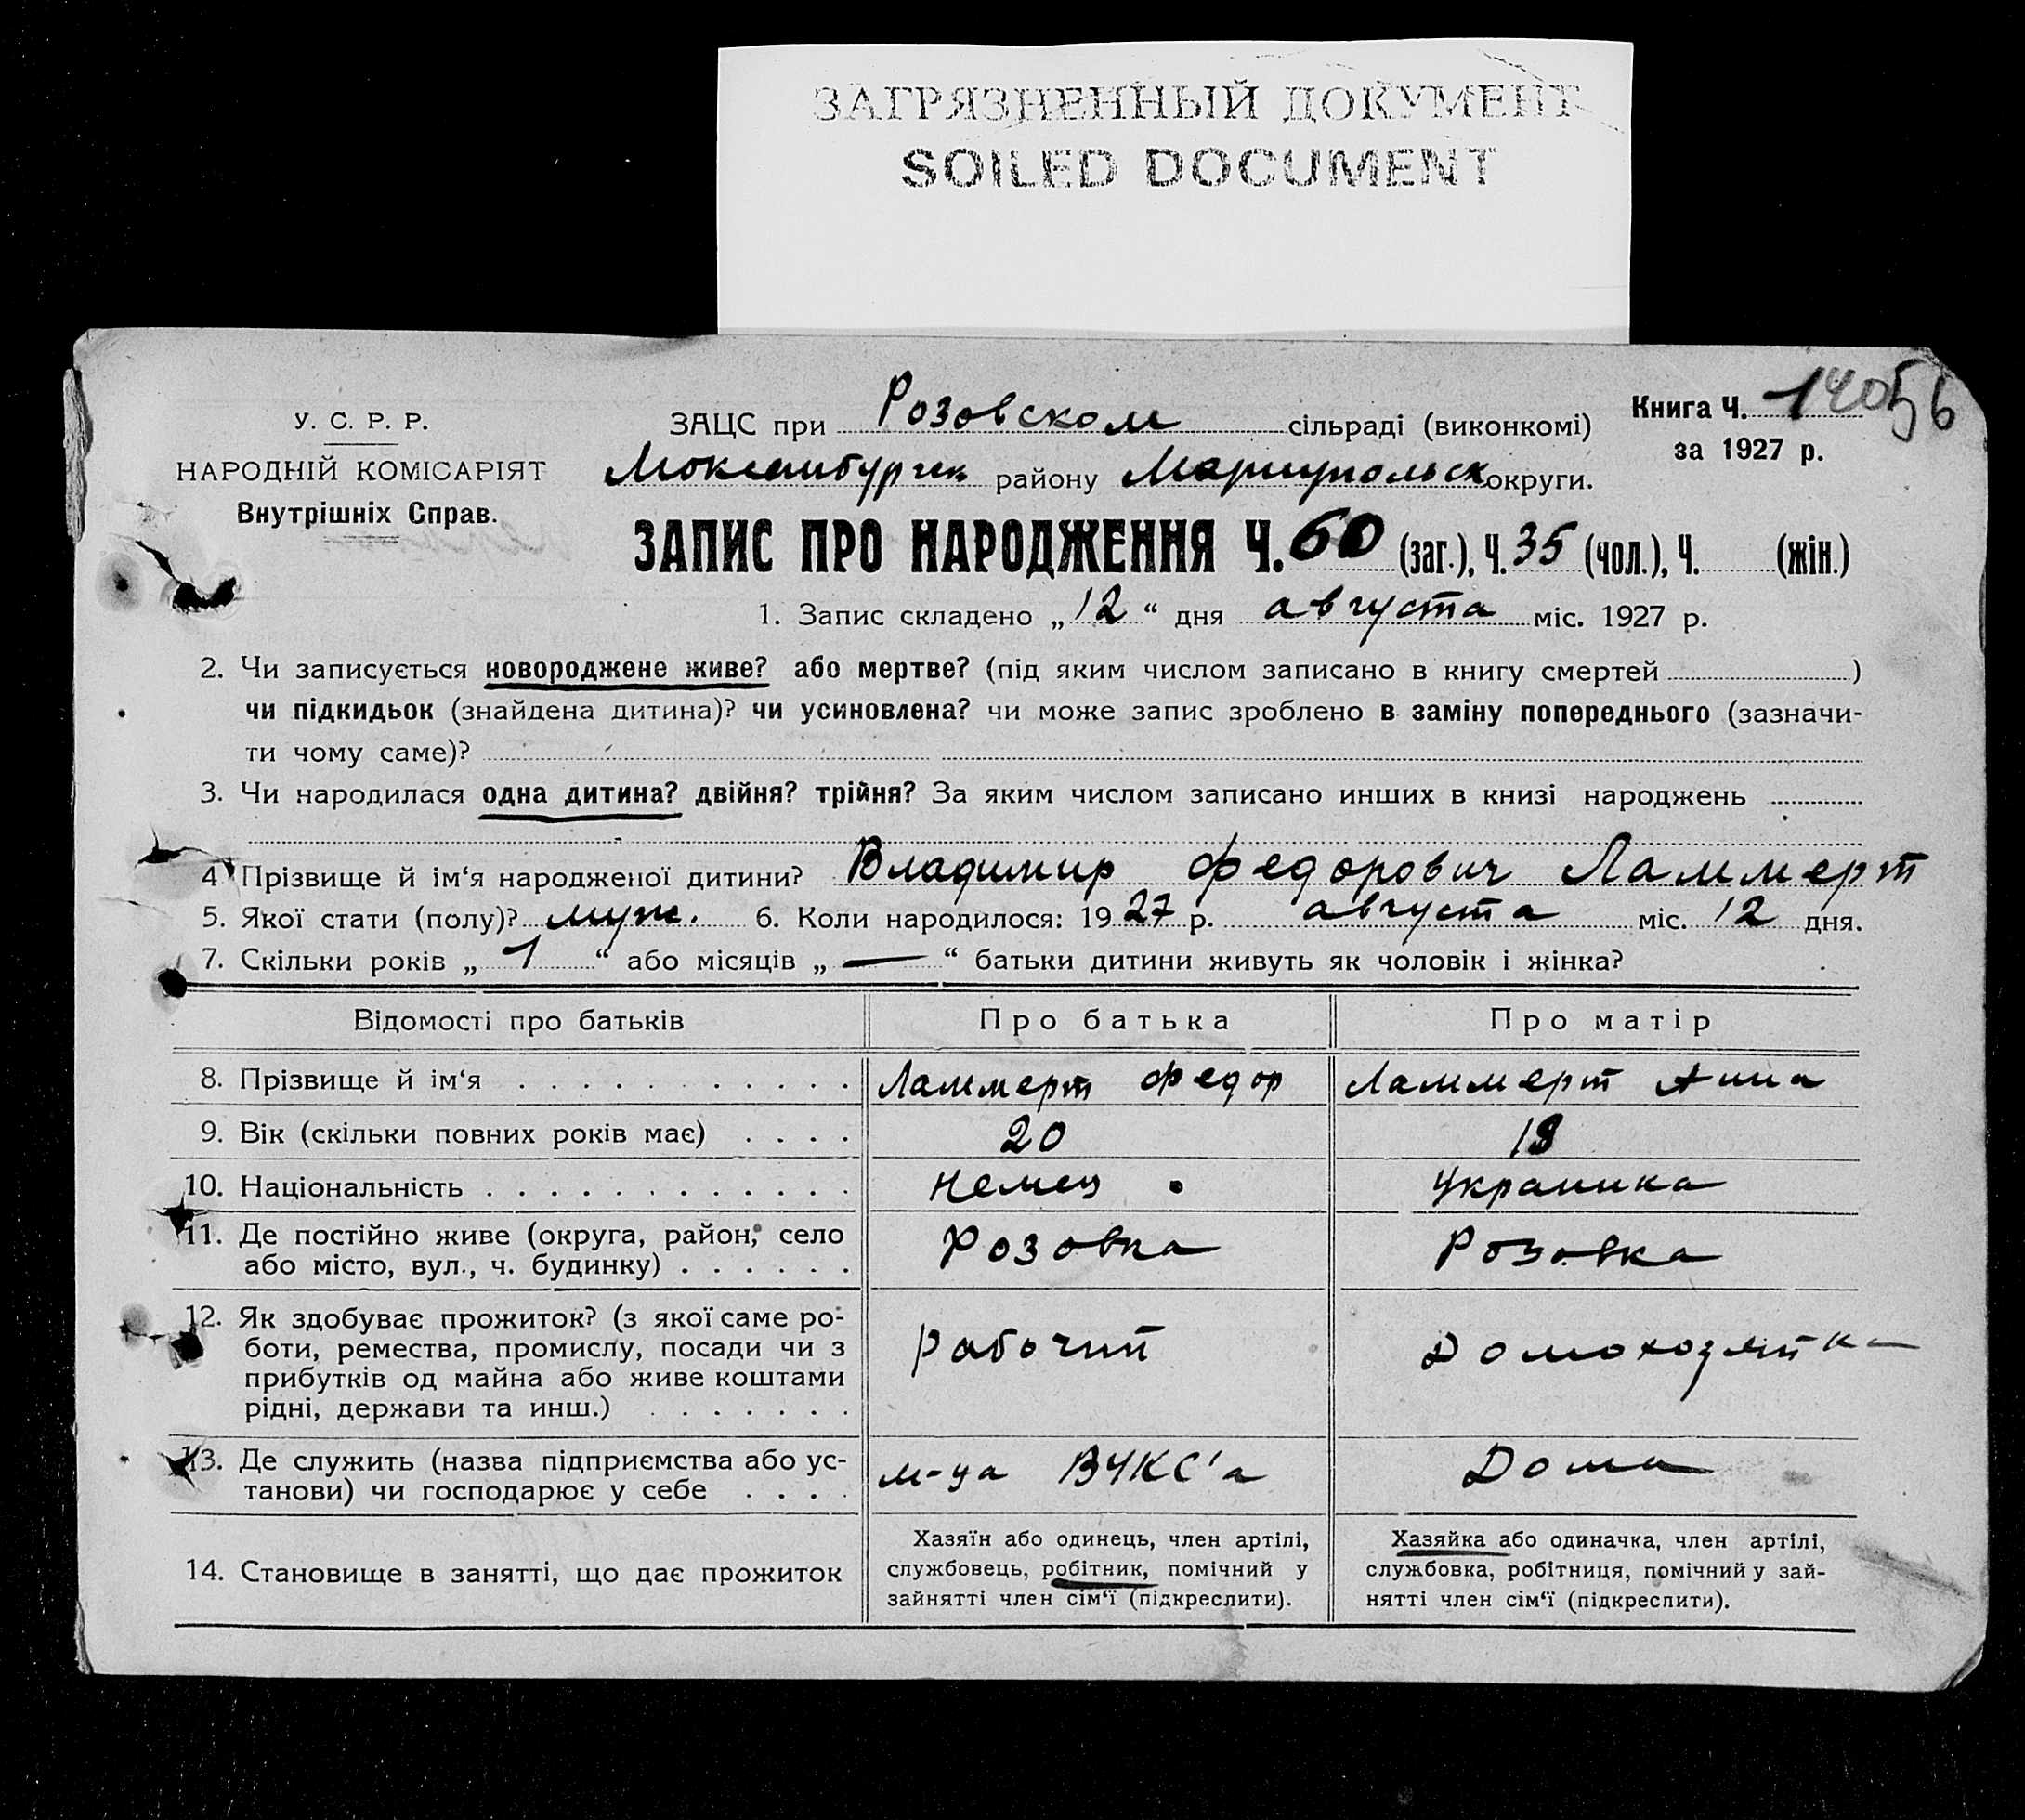 ЗАГРЯЗНЕННЫЙ ДОКУМЕНТ
SOILED DOCUMENT
У. С. Р. Р.
НАРОДНІЙ КОМІСАРІЯТ
Внутрішніх Справ.
ЗАЦС при Розовском сільраді (виконкомі)
району Мариупольск округи.
Книга Ч. 1
за 1927 р.
ЗАПИС ПРО НАРОДЖЕННЯ Ч. 60 (заг.), Ч. 35 (чол.), Ч. (жін.)
1. Запис складено „ 12 “ дня августа міс. 1927 р.
2. Чи записується новороджене живе? або мертве? (під яким числом записано в книгу смертей )
чи підкидьок (знайдена дитина)? чи усиновлена? чи може запис зроблено в заміну попереднього (зазначи-
ти чому саме)?
3. Чи народилася одна дитина? двійня? трійня? За яким числом записано инших в книзі народжень
4 Прізвище й ім‘я народженої дитини? Владимир Федорович Ламмерт
5. Якої стати (полу)? муж. 6. Коли народилося: 1927 р. августа міс. 12 дня.
7. Скільки років „ 1 “ або місяців „ — “ батьки дитини живуть як чоловік і жінка?
Відомості про батьків Про батька Про матір
8. Прізвище й ім‘я Ламмерт Федор Ламмерт Анна
9. Вік (скільки повних років має) 20
10. Національність Немец Украинка
11. Де постійно живе (округа, район, село
або місто, вул., ч. будинку) Розовка Розовка
12. Як здобуває прожиток? (з якої саме ро-
боти, ремества, промислу, посади чи з
прибутків од майна або живе коштами
рідні, держави та инш.) Рабочий Домохозяйка
13. Де служить (назва підприємства або ус-
танови) чи господарює у себе м-ца ВУКС'а Дома
14. Становище в занятті, що дає прожиток
Хазяїн або одинець, член артілі,
службовець, робітник, помічний у
зайнятті член сім‘ї (підкреслити).
Хазяйка або одиначка, член артілі,
службовка, робітниця, помічний у зай-
нятті член сім‘ї (підкреслити).